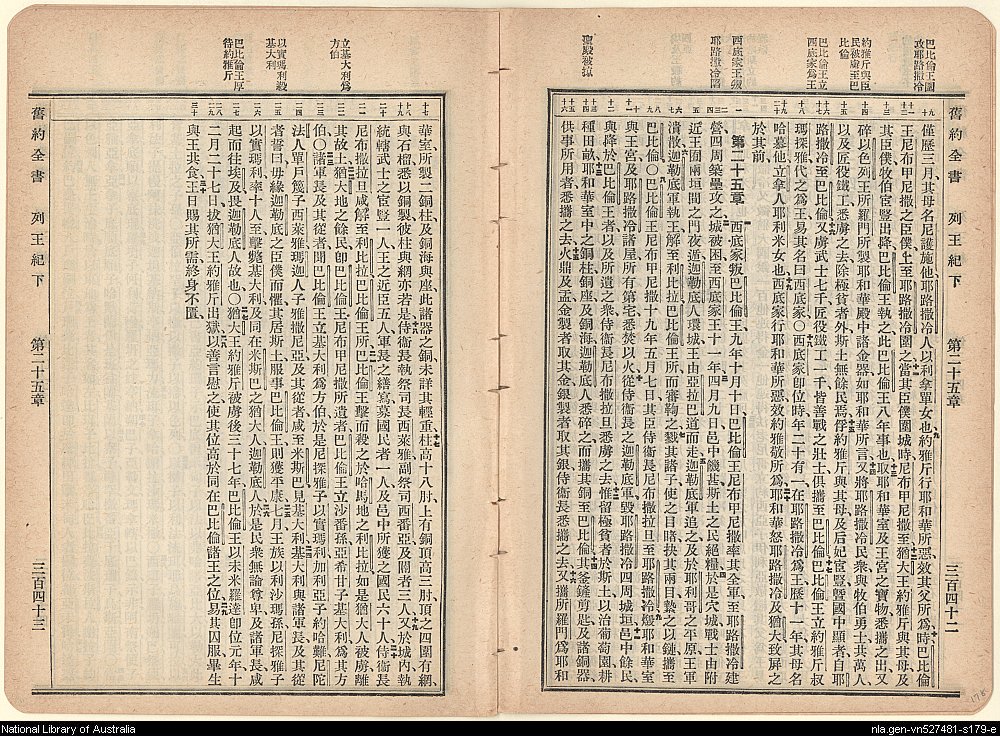 巴比倫王圍
攻耶路撒冷
約雅斤與臣
民被虜至巴
比倫
巴比倫王立
西底家爲王
西底家王叛
耶路撒冷陷
聖殿被燬
舊約全書 列王紀下 第二十五章 三百四十二
僅歷三月其母名尼護施他耶路撒冷人以利拿單女也約雅斤行耶和華所惡效其父所爲時巴比倫
王尼布甲尼撒之臣僕上至耶路撒冷圍之當其臣僕圍城時尼布甲尼撒至猶大王約雅斤與其母及
其臣僕牧伯宦豎出降巴比倫王執之此巴比倫王八年事也取耶和華室及王宮之寶物悉攜之出又
碎以色列王所羅門所製耶和華殿中諸金器如耶和華所言又將耶路撒冷民衆與牧伯勇士共萬人
以及匠役鐵工悉虜之去除極貧者外斯土無餘民焉俘約雅斤與其母及后妃宦豎曁國中顯者自耶
路撒冷至巴比倫又虜武士七千匠役鐵工一千皆善戰之壯士俱攜至巴比倫巴比倫王立約雅斤叔
瑪探雅代之爲王易其名曰西底家○西底家卽位時年二十有一在耶路撒冷爲王歷十一年其母名
哈慕他立拿人耶利米女也西底家行耶和華所惡效約雅敬所爲耶和華怒耶路撒冷及猶大致屏之
於其前
第二十五章 西底家叛巴比倫王九年十月十日巴比倫王尼布甲尼撒率其全軍至耶路撒冷建
營四周築壘攻之城被困至西底家王十一年四月九日邑中饑甚斯土之民絕糧於是穴城戰士由附
近王囿兩垣間之門夜遁迦勒底人環城王由亞拉巴道而走迦勒底軍追之及於耶利哥之平原王軍
潰散迦勒底軍執王解至利比拉巴比倫王所而審鞫之戮其諸子使之目睹抉其兩目縶之以鏈攜至
巴比倫○巴比倫王尼布甲尼撒十九年五月七日其臣侍衛長尼布撒拉旦至耶路撒冷燬耶和華室
與王宮及耶路撒冷諸屋所有第宅悉焚以火從侍衛長之迦勒底軍毀耶路撒冷四周城垣邑中餘民
與降於巴比倫王者以及所遺之衆侍衛長尼布撒拉旦悉虜之去惟留極貧者於斯土以治葡萄園耕
種田畝耶和華室中之銅柱銅座及銅海迦勒底人悉碎之而攜其銅至巴比倫其釜鏟剪匙及諸銅器
供事所用者悉攜之去火鼎及盂金製者取其金銀製者取其銀侍衛長悉攜之去又攜所羅門爲耶和
立基大利爲
方伯
以實瑪利殺
基大利
巴比倫王厚
待約雅斤
華室所製二銅柱及銅海與座此諸器之銅未詳其輕重柱高十八肘上有銅頂高三肘頂之四圍有網
與石榴悉以銅製彼柱與網亦若是侍衛長執祭司長西萊雅副祭司西番亞及閽者三人又於城內執
統轄武士之宦豎一人王之近臣五人軍長之繕寫募國民者一人及邑中所獲之國民六十人侍衛長
尼布撒拉旦咸解至利比拉巴比倫王所巴比倫王擊而殺之於哈馬地之利比拉如是猶大人被虜離
其故土猶大地之餘民卽巴比倫王尼布甲尼撒所遺者巴比倫王立沙番孫亞希甘子基大利爲其方
伯○諸軍長及其從者聞巴比倫王立基大利爲方伯於是尼探雅子以實瑪利加利亞子約哈難尼陀
法人單戶篾子西萊雅瑪迦人子雅撒尼亞及其從者咸至米斯巴見基大利基大利與諸軍長及其從
者誓曰毋緣迦勒底之臣僕而懼其居斯土服事巴比倫王則獲平康七月王族以利沙瑪孫尼探雅子
以實瑪利率十人至擊斃基大利及同在米斯巴之猶大人迦勒底人於是民衆無論尊卑及諸軍長咸
起而往埃及畏迦勒底人故也○猶大王約雅斤被虜後三十七年巴比倫王以未米羅達卽位元年十
二月二十七日拔猶大王約雅斤出獄以善言慰之使其位高於同在巴比倫諸王之位易其囚服畢生
與王共食王日賜其所需終身不置
舊約全書 列王紀下 第二十五章 三百四十三
National Library of Australia
nla.gen-vn527481-s179-e